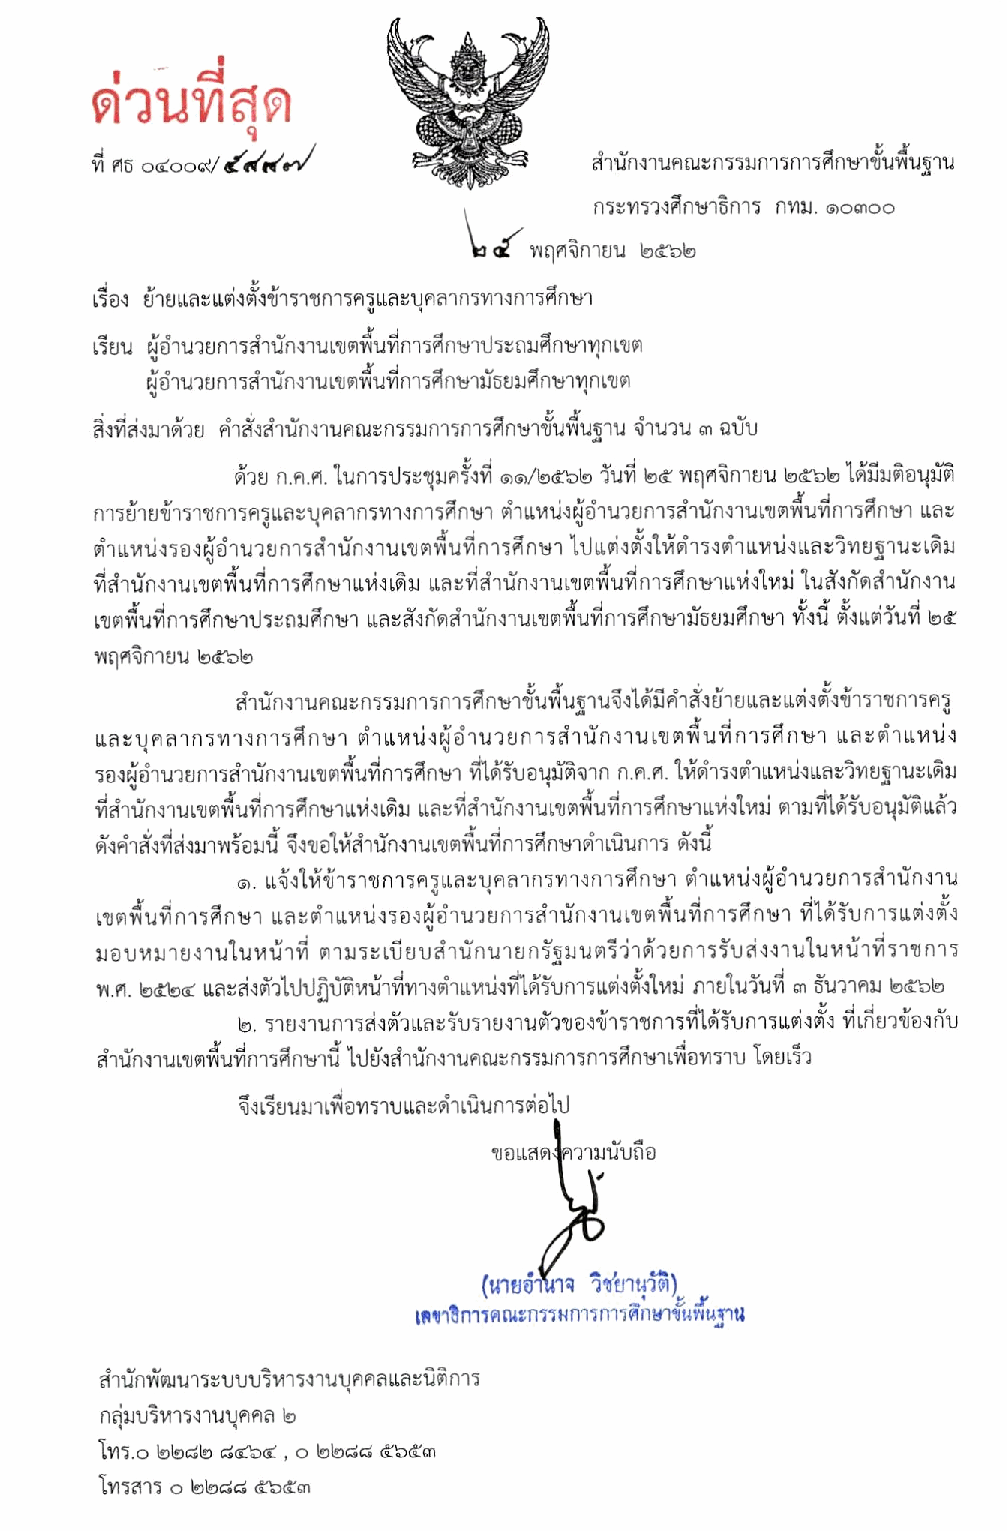 ด่วนที่สุด
ที่ ศธ ๐๔๐๐๙/๕๘๘๗
สำนักงานคณะกรรมการการศึกษาขั้นพื้นฐาน
กระทรวงศึกษาธิการ กทม. ๑๐๓๐๐
๒๕ พฤศจิกายน ๒๕๖๒
เรื่อง ย้ายและแต่งตั้งข้าราชการครูและบุคลากรทางการศึกษา
เรียน ผู้อำนวยการสำนักงานเขตพื้นที่การศึกษาประถมศึกษาทุกเขต
ผู้อำนวยการสำนักงานเขตพื้นที่การศึกษามัธยมศึกษาทุกเขต
สิ่งที่ส่งมาด้วย คำสั่งสำนักงานคณะกรรมการการศึกษาขั้นพื้นฐาน จำนวน ๓ ฉบับ
ด้วย ก.ค.ศ. ในการประชุมครั้งที่ ๑๑/๒๕๖๒ วันที่ ๒๕ พฤศจิกายน ๒๕๖๒ ได้มีมติอนุมัติ
การย้ายข้าราชการครูและบุคลากรทางการศึกษา ตำแหน่งผู้อำนวยการสำนักงานเขตพื้นที่การศึกษา และ
ตำแหน่งรองผู้อำนวยการสำนักงานเขตพื้นที่การศึกษา ไปแต่งตั้งให้ดำรงตำแหน่งและวิทยฐานะเดิม
ที่สำนักงานเขตพื้นที่การศึกษาแห่งเดิม และที่สำนักงานเขตพื้นที่การศึกษาแห่งใหม่ ในสังกัดสำนักงาน
เขตพื้นที่การศึกษาประถมศึกษา และสังกัดสำนักงานเขตพื้นที่การศึกษามัธยมศึกษา ทั้งนี้ ตั้งแต่วันที่ ๒๕
พฤศจิกายน ๒๕๖๒
สำนักงานคณะกรรมการการศึกษาขั้นพื้นฐานจึงได้มีคำสั่งย้ายและแต่งตั้งข้าราชการครู
และบุคลากรทางการศึกษา ตำแหน่งผู้อำนวยการสำนักงานเขตพื้นที่การศึกษา และตำแหน่ง
รองผู้อำนวยการสำนักงานเขตพื้นที่การศึกษา ที่ได้รับอนุมัติจาก ก.ค.ศ. ให้ดำรงตำแหน่งและวิทยฐานะเดิม
ที่สำนักงานเขตพื้นที่การศึกษาแห่งเดิม และที่สำนักงานเขตพื้นที่การศึกษาแห่งใหม่ ตามที่ได้รับอนุมัติแล้ว
ดังคำสั่งที่ส่งมาพร้อมนี้ จึงขอให้สำนักงานเขตพื้นที่การศึกษาดำเนินการ ดังนี้
๑. แจ้งให้ข้าราชการครูและบุคลากรทางการศึกษา ตำแหน่งผู้อำนวยการสำนักงาน
เขตพื้นที่การศึกษา และตำแหน่งรองผู้อำนวยการสำนักงานเขตพื้นที่การศึกษา ที่ได้รับการแต่งตั้ง
มอบหมายงานในหน้าที่ ตามระเบียบสำนักนายกรัฐมนตรีว่าด้วยการรับส่งงานในหน้าที่ราชการ
พ.ศ. ๒๕๒๔ และส่งตัวไปปฏิบัติหน้าที่ทางตำแหน่งที่ได้รับการแต่งตั้งใหม่ ภายในวันที่ ๓ ธันวาคม ๒๕๖๒
๒. รายงานการส่งตัวและรับรายงานตัวของข้าราชการที่ได้รับการแต่งตั้ง ที่เกี่ยวข้องกับ
สำนักงานเขตพื้นที่การศึกษานี้ ไปยังสำนักงานคณะกรรมการการศึกษาเพื่อทราบ โดยเร็ว
จึงเรียนมาเพื่อทราบและดำเนินการต่อไป
ขอแสดงความนับถือ
(นายอำนาจ วิชยานุวัติ)
เลขาธิการคณะกรรมการการศึกษาขั้นพื้นฐาน
สำนักพัฒนาระบบบริหารงานบุคคลและนิติการ
กลุ่มบริหารงานบุคคล ๒
โทร.๐ ๒๒๘๒ ๘๔๖๔ , ๐ ๒๒๘๘ ๕๖๕๓
โทรสาร ๐ ๒๒๘๘ ๕๖๕๓